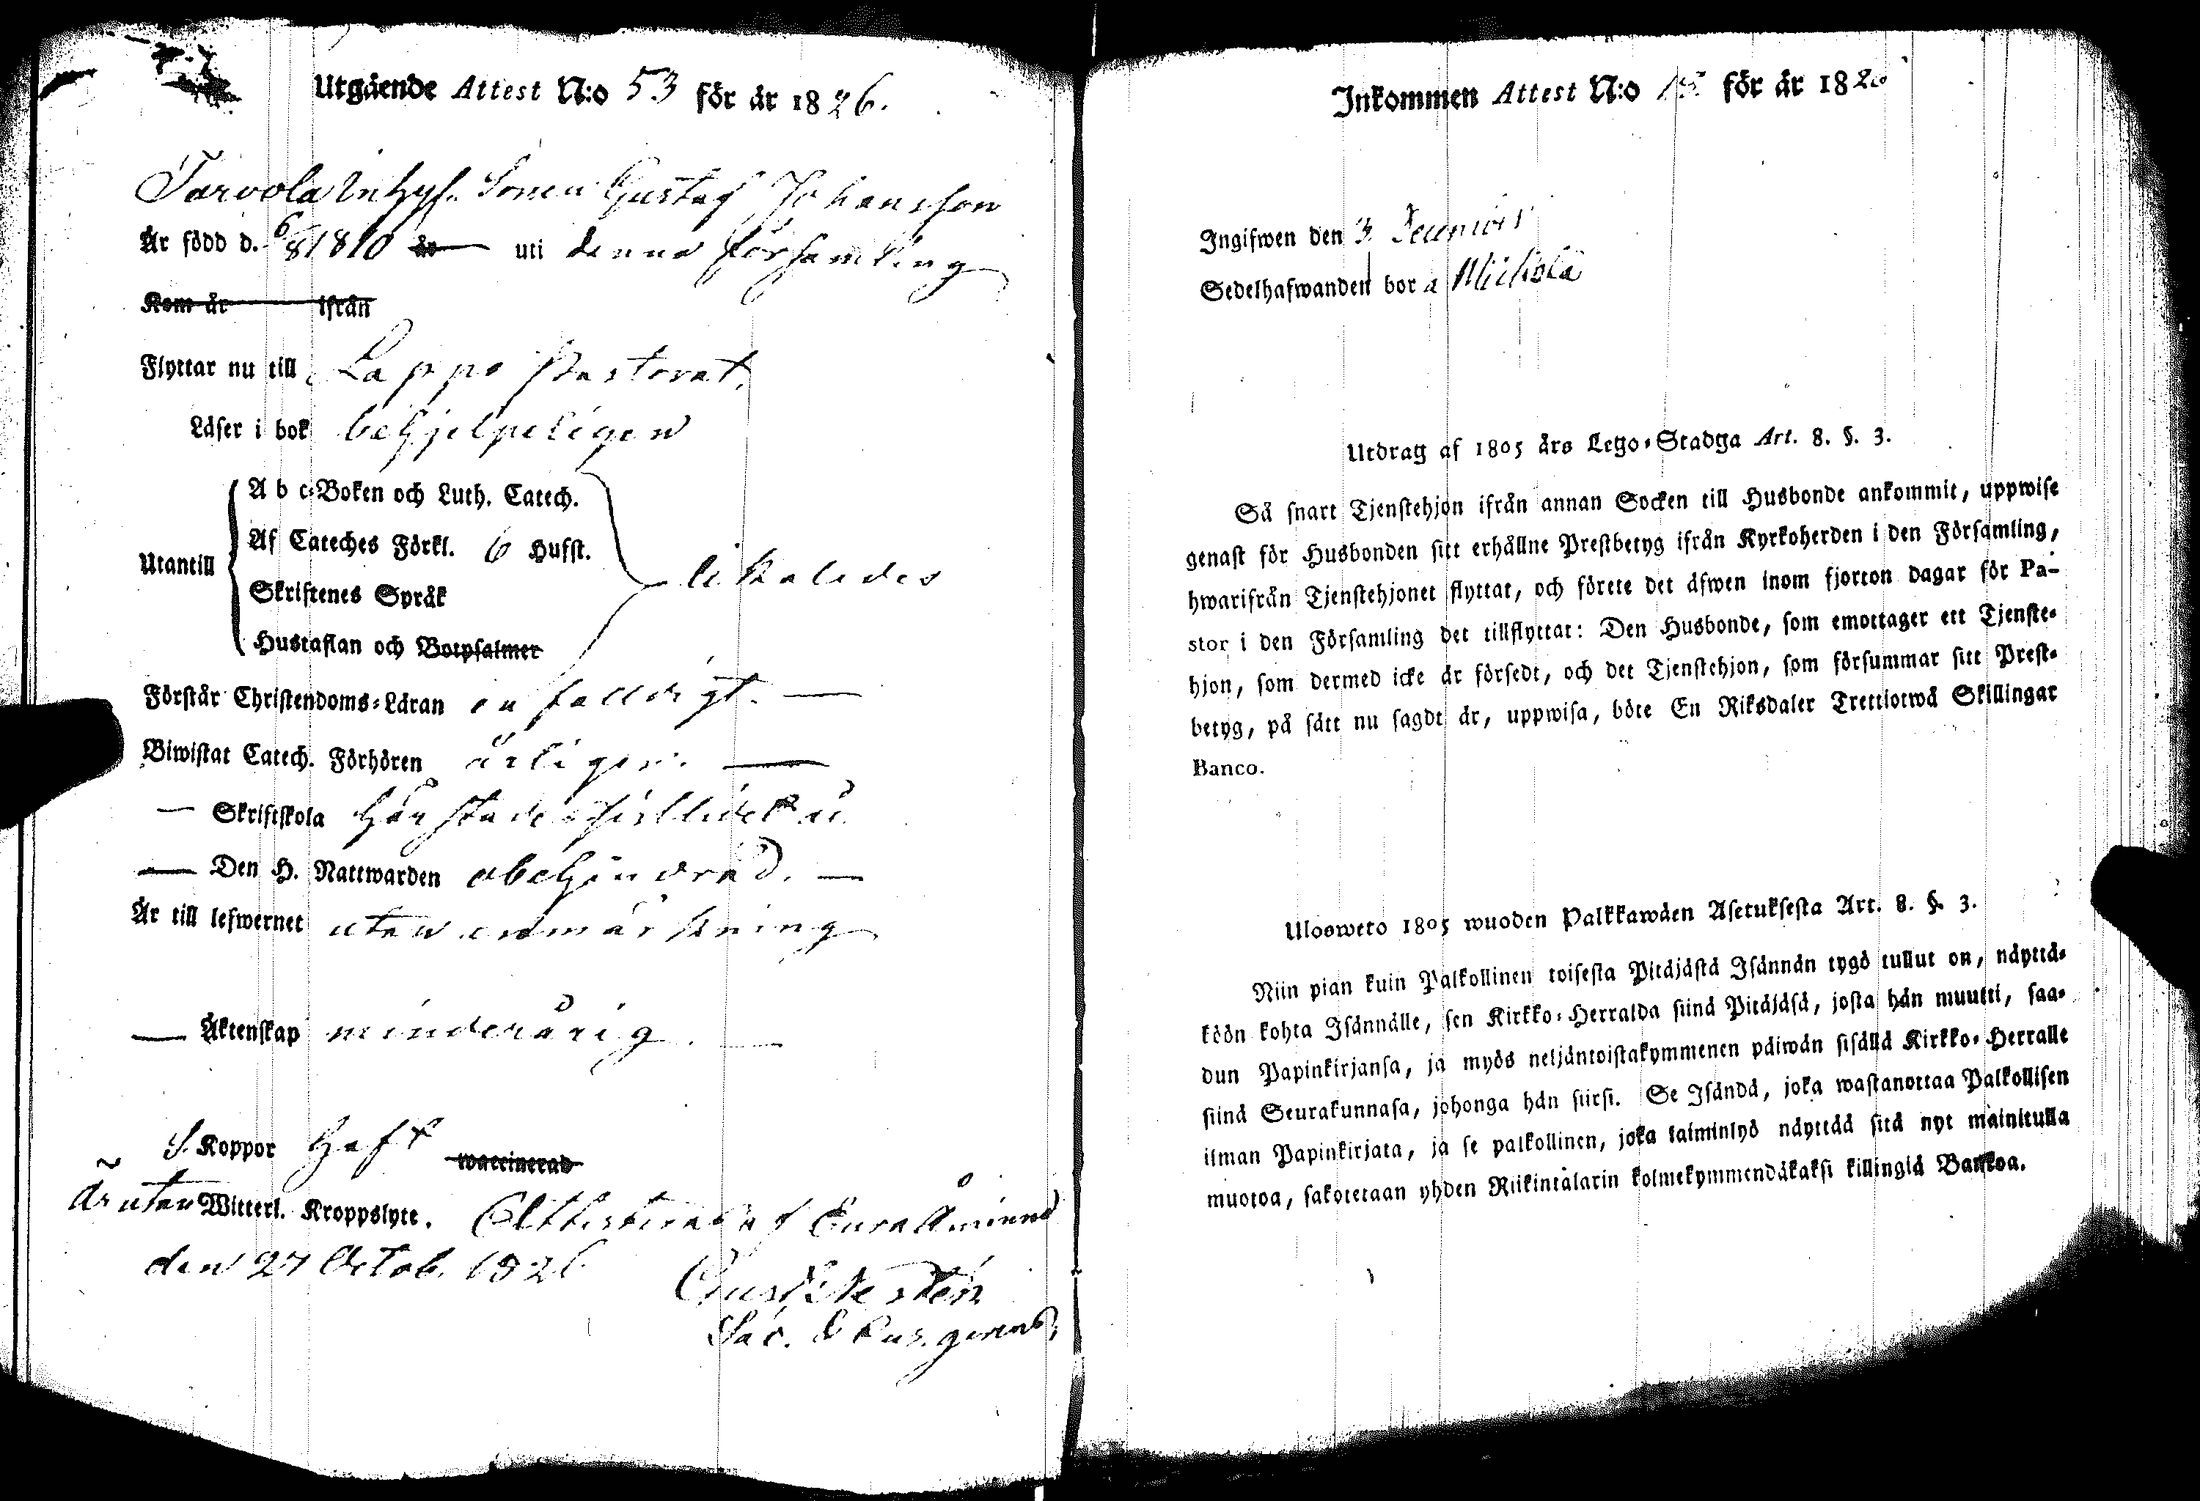 Utgående Attest N:o 53 för år 1826.
Tarvola Inhys. Sonen Gustaf Johansson
Är född d. 6/8 1810 år uti denna församling
Kom år ifrån
Flyttar nu till Lappo Pastorat,
Läser i bok behjelpeligen
A b c-Boken och Luth. Catech.
Af Cateches Förkl. 6 Hufst.
Utantill likaledes
Skriftenes Språk
Hustaflan och Botpsalmer
Förstår Christendoms-Läran enfalldigt. —
Biwistat Catech. Förhören årligen. —
— Skriftskola
— Den H. Nattwarden obehindrad. —
Är till lefwernet utan anmärkning
— Äktenskap minderårig. —
S. Koppor haft waccinerad
är utan Witterl. Kroppslyte. Attesterad af Eura Åminne
den 27 Octob. 1826
Gust:
Sac. & Pus. gerens,
Inkommen Attest N:o för år 182
Ingifwen den 3
Sedelhafwanden bor å
Utdrag af 1805 års Lego-Stadga Art. 8. §. 3.
Så snart Tjenstehjon ifrån annan Socken till Husbonde ankommit, uppwise
genast för Husbonden sitt erhållne Prestbetyg ifrån Kyrkoherden i den Församling,
hwarifrån Tjenstehjonet flyttat, och förete det äfwen inom fjorton dagar för Pa-
stor i den Församling det tillflyttat: Den Husbonde, som emottager ett Tjenste-
hjon, som dermed icke är försedt, och det Tjenstehjon, som försummar sitt Prest-
betyg, på sätt nu sagdt är, uppwisa, böte En Riksdaler Trettiotwå Skillingar
Banco.
Ulosweto 1805 wuoden Palkkawäen Asetuksesta Art. 8. §. 3.
Niin pian kuin Palkollinen toisesta Pitäjästä Isännän tygö tullut on, näyttä-
köön kohta Isännälle, sen Kirkko-Herralda siinä Pitäjäsä, josta hän muutti, saa-
dun Papinkirjansa, ja myös neljäntoistakymmenen päiwän sisällä Kirkko-Herralle
siinä Seurakunnasa, johonga hän siirsi. Se Isändä, joka wastanottaa Palkollisen
ilman Papinkirjata, ja se palkollinen, joka laiminlyö näyttää sitä nyt mainitulla
muotoa, sakotetaan yhden Riikintalarin kolmekymmendäkaksi killingiä Bankoa.